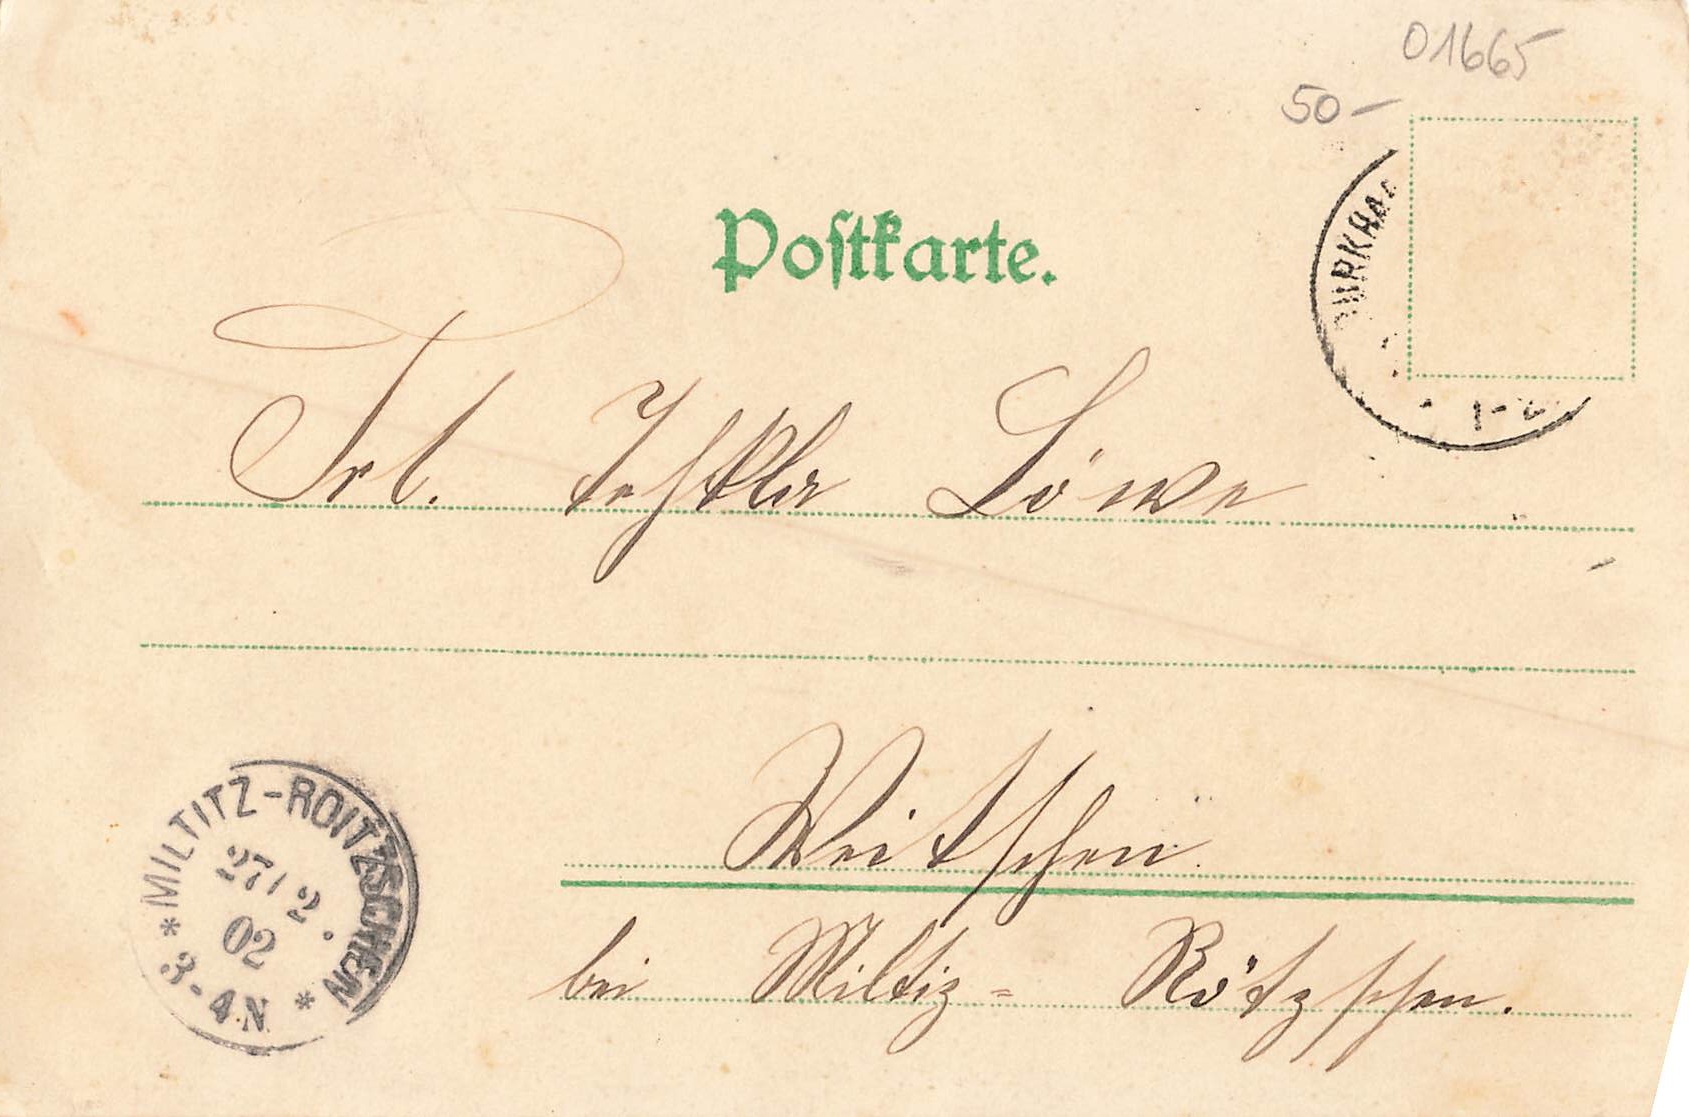 01665
50-
Postkarte.
URKHA
1-2
Frl. Löwe
Weitschen
bei Miltiz= Rötzschen.
* MILTITZ-ROITZSCHEN *
27/2.
02
3-4N